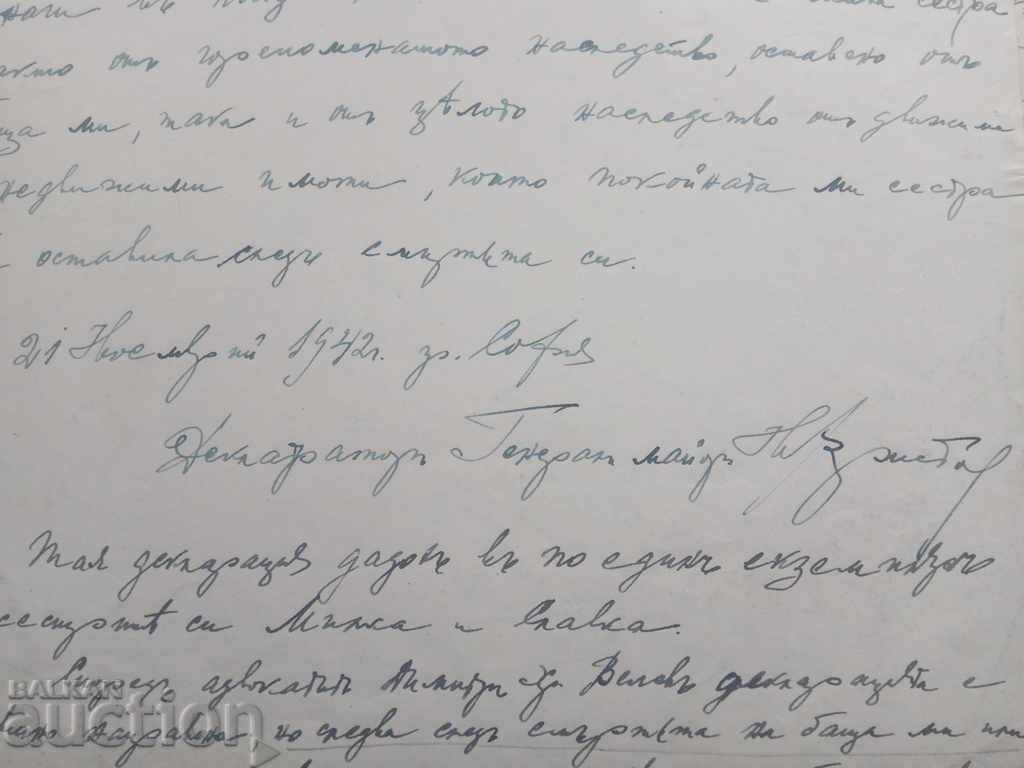 сестра-
както отъ гореспоменатото наследство, оставено отъ
ща ми, така и отъ цѣлото наследство отъ движими
недвижими имоти, които покойната ми сестра
оставила следъ смъртьта си.
21 Ноемврий 1942г. гр. София
Деклараторъ Генералъ майоръ Христов
Тая декларация дадохъ въ по единъ екземпляръ
сестритѣ си Минка и Славка.
Споредъ адвокатътъ Димитъръ Велевъ декларацията е
направена, но следва следъ смъртьта на баща ми
BALKAN
auction